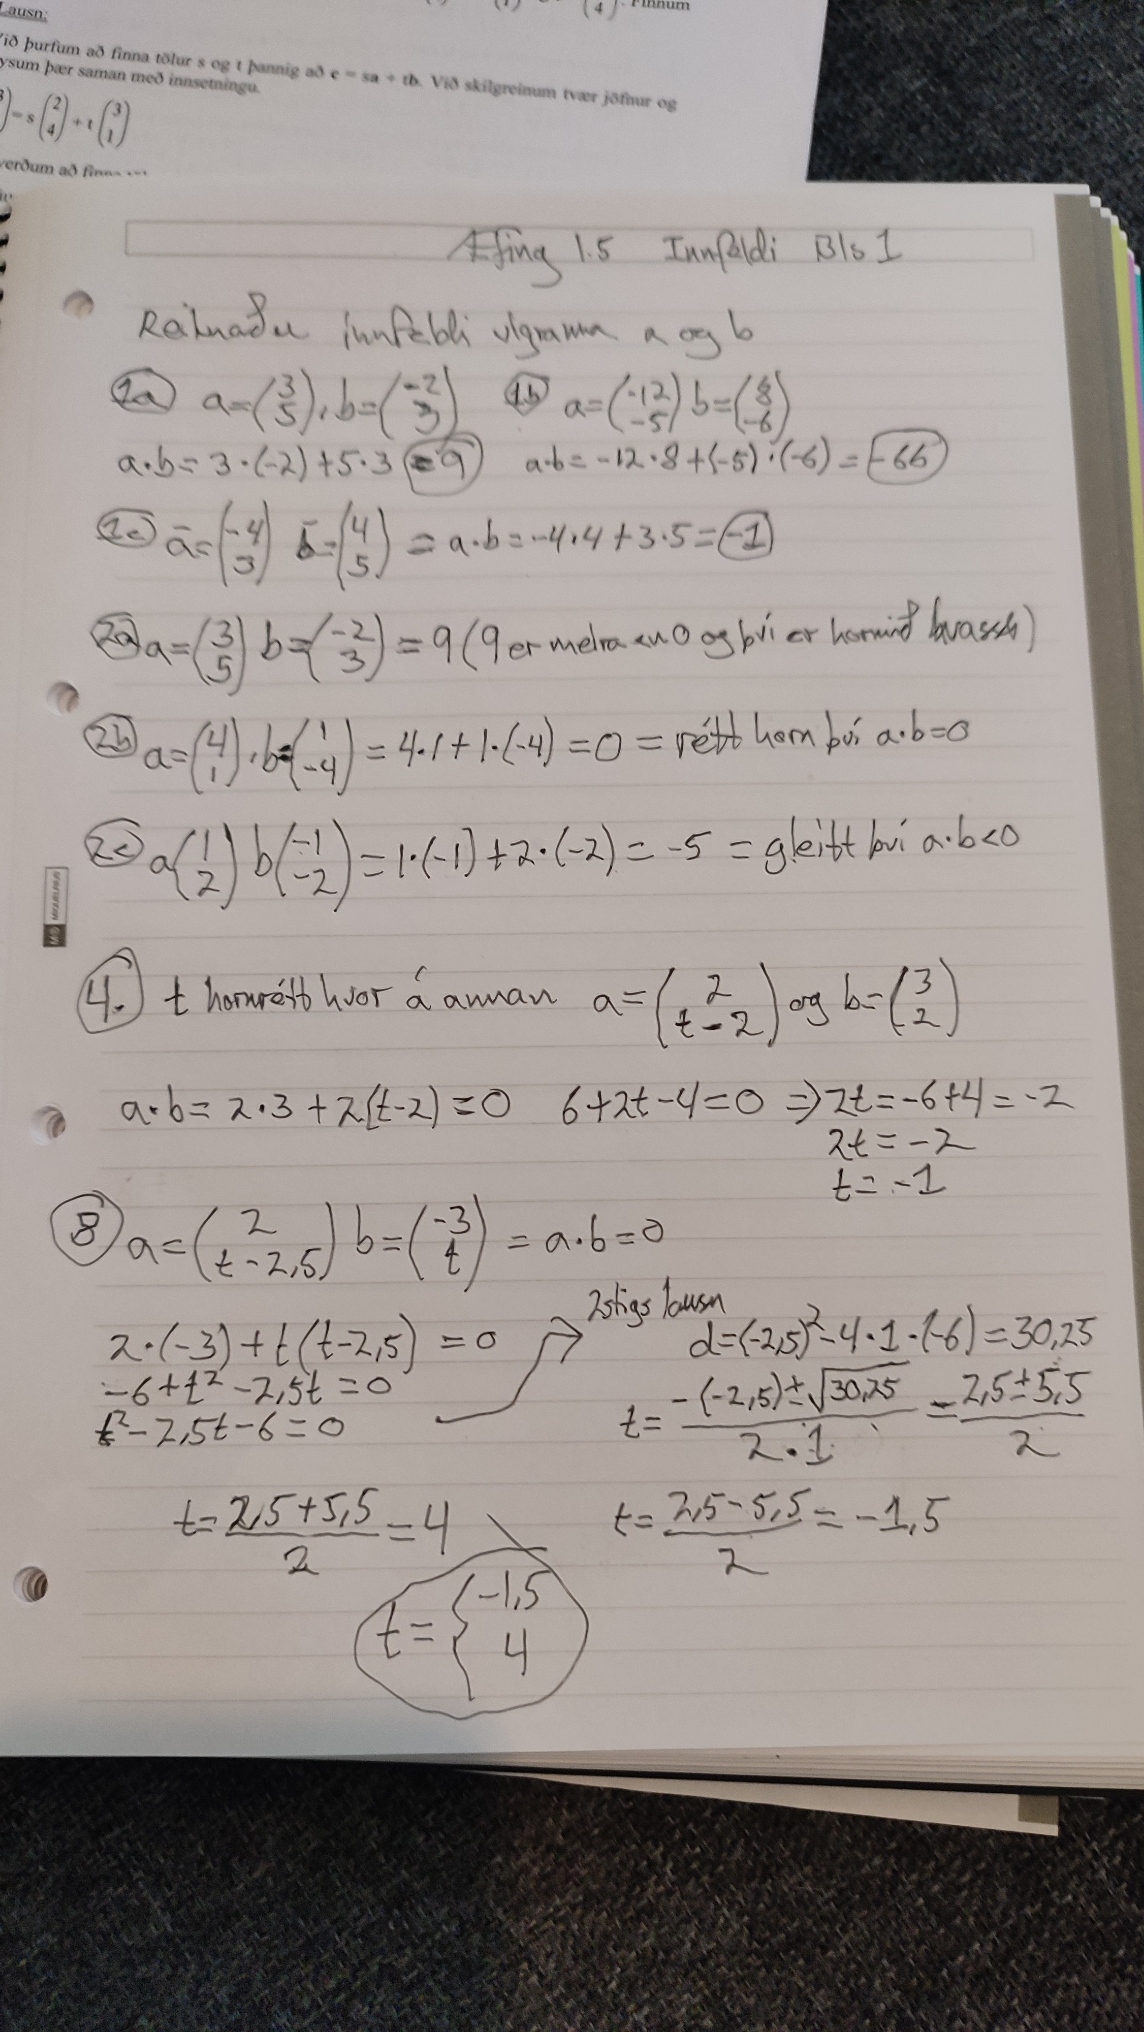 Lausn:
(1) (4). Finnum
Við þurfum að finna tölur s og t þannig að c = sa + tb. Við skilgreinum tvær jöfnur og
ysum þær saman með innsetningu.
) = s (2 4) + t (3 1)
verðum að finna
Æfing 1.5 Innfeldi Bls 1
Reiknaðu innfeldi vigranna a og b
1a a=(3 5), b=(-2 3) 1b a=(-12 -5) b=(8 -6)
a·b=3·(-2)+5·3=9 a·b=-12·8+(-5)·(-6)=-66
1c ā=(-4 3) b̄=(4 5) = a·b=-4·4+3·5=-1
2a a=(3 5) b=(-2 3) = 9 (9 er meira en 0 og því er hornið hvasst)
2b a=(4 1), b=(1 -4) = 4·1+1·(-4)=0 = rétt horn því a·b=0
2c a(1 2) b(-1 -2) = 1·(-1)+2·(-2) = -5 = gleitt því a·b<0
MS MÚLALUNDUR
4. t hornrétt hvor á annan a=(2 t-2) og b=(3 2)
a·b=2·3+2(t-2)=0 6+2t-4=0 ⇒ 2t=-6+4=-2
2t=-2
t=-1
8 a=(2 t-2,5) b=(-3 t) = a·b=0
2stigs lausn
2·(-3)+t(t-2,5)=0 d=(-2,5)²-4·1·(-6)=30,25
-6+t²-2,5t=0
t²-2,5t-6=0 t=(-(-2,5)±√30,25)/(2·1) = (2,5±5,5)/2
t=(2,5+5,5)/2=4 t=(2,5-5,5)/2=-1,5
t={-1,5
4